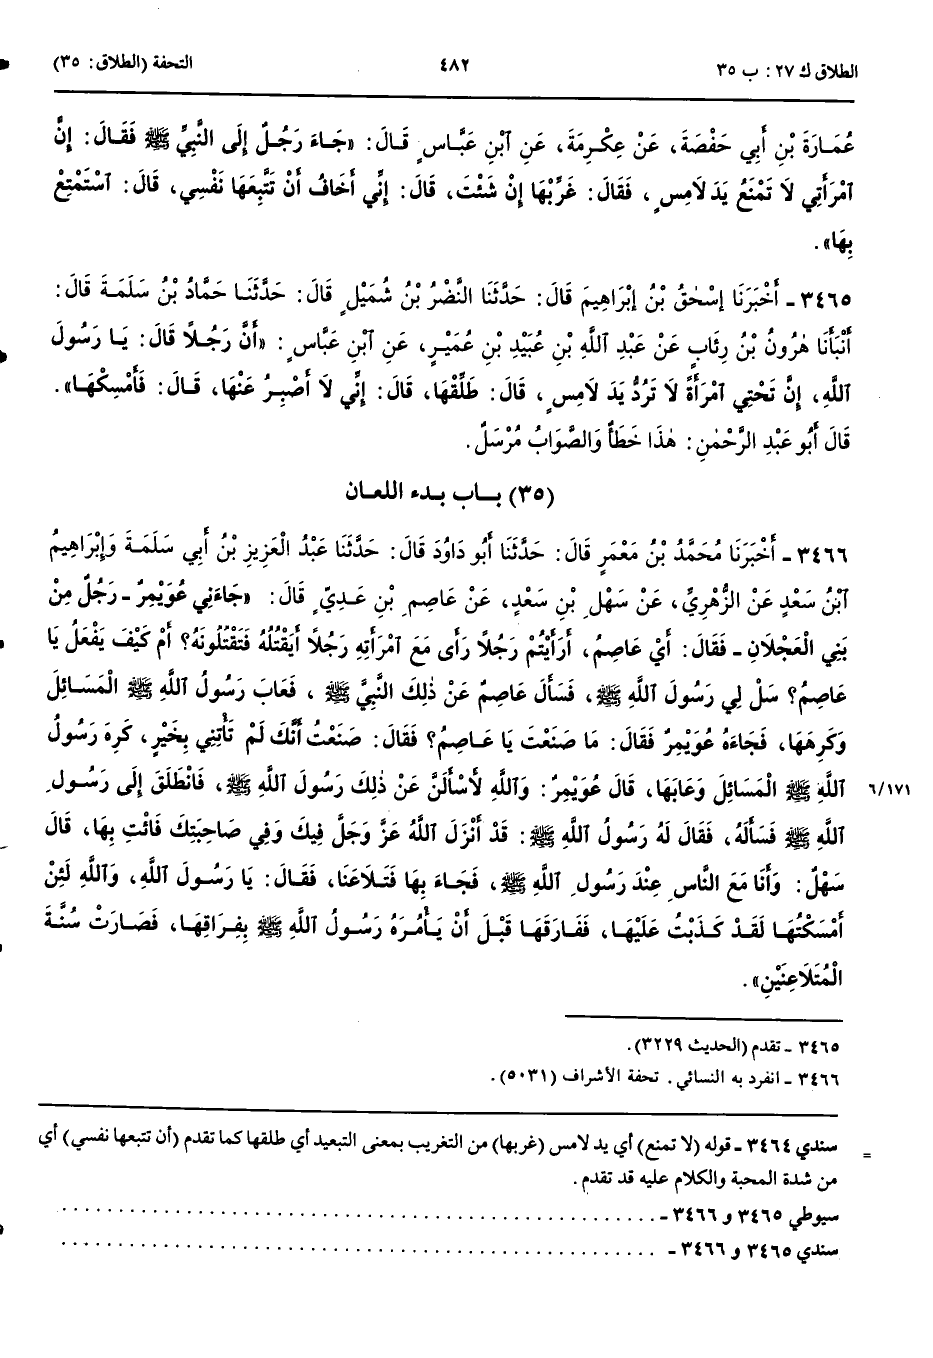 الطلاق ك ٢٧: ب ٣٥ ٤٨٢ التحفة (الطلاق: ٣٥)
عُمَارَةَ بْنِ أَبِي حَفْصَةَ، عَنْ عِكْرِمَةَ، عَنِ ٱبْنِ عَبَّاسٍ قَالَ: «جَاءَ رَجُلٌ إِلَى النَّبِيِّ ﷺ فَقَالَ: إِنَّ
ٱمْرَأَتِي لَا تَمْنَعُ يَدَ لَامِسٍ، فَقَالَ: غَرِّبْهَا إِنْ شَئْتَ، قَالَ: إِنِّي أَخَافُ أَنْ تَتَّبِعَهَا نَفْسِي، قَالَ: ٱسْتَمْتِعْ
بِهَا».
٣٤٦٥ - أَخْبَرَنَا إِسْحٰقُ بْنُ إِبْرَاهِيمَ قَالَ: حَدَّثَنَا النَّضْرُ بْنُ شُمَيْلٍ قَالَ: حَدَّثَنَا حَمَّادُ بْنُ سَلَمَةَ قَالَ:
أَنْبَأَنَا هٰرُونُ بْنُ رِئَابٍ عَنْ عَبْدِ اللَّهِ بْنِ عُبَيْدِ بْنِ عُمَيْرٍ، عَنِ ٱبْنِ عَبَّاسٍ: «أَنَّ رَجُلاً قَالَ: يَا رَسُولَ
ٱللَّهِ، إِنَّ تَحْتِي ٱمْرَأَةً لَا تَرُدُّ يَدَ لَامِسٍ، قَالَ: طَلِّقْهَا، قَالَ: إِنِّي لَا أَصْبِرُ عَنْهَا، قَالَ: فَأَمْسِكْهَا».
قَالَ أَبُو عَبْدِ الرَّحْمٰنِ: هٰذَا خَطَأٌ وَالصَّوَابُ مُرْسَلٌ.
(٣٥) باب بدء اللعان
٣٤٦٦ - أَخْبَرَنَا مُحَمَّدُ بْنُ مَعْمَرٍ قَالَ: حَدَّثَنَا أَبُو دَاوُدَ قَالَ: حَدَّثَنَا عَبْدُ الْعَزِيزِ بْنُ أَبِي سَلَمَةَ وَإِبْرَاهِيمُ
ٱبْنُ سَعْدٍ عَنِ الزُّهْرِيِّ، عَنْ سَهْلِ بْنِ سَعْدٍ، عَنْ عَاصِمِ بْنِ عَدِيٍّ قَالَ: «جَاءَنِي عُوَيْمِرٌ - رَجُلٌ مِنْ
بَنِي الْعَجْلَانِ - فَقَالَ: أَيْ عَاصِمُ، أَرَأَيْتُمْ رَجُلاً رَأَى مَعَ ٱمْرَأَتِهِ رَجُلاً أَيَقْتُلُهُ فَتَقْتُلُونَهُ؟ أَمْ كَيْفَ يَفْعَلُ يَا
عَاصِمُ؟ سَلْ لِي رَسُولَ ٱللَّهِ ﷺ، فَسَأَلَ عَاصِمٌ عَنْ ذٰلِكَ النَّبِيَّ ﷺ، فَعَابَ رَسُولُ ٱللَّهِ ﷺ الْمَسَائِلَ
وَكَرِهَهَا، فَجَاءَهُ عُوَيْمِرٌ فَقَالَ: مَا صَنَعْتَ يَا عَاصِمُ؟ فَقَالَ: صَنَعْتُ أَنَّكَ لَمْ تَأْتِنِي بِخَيْرٍ، كَرِهَ رَسُولُ
ٱللَّهِ ﷺ الْمَسَائِلَ وَعَابَهَا، قَالَ عُوَيْمِرٌ: وَٱللَّهِ لَأَسْأَلَنَّ عَنْ ذٰلِكَ رَسُولَ ٱللَّهِ ﷺ، فَانْطَلَقَ إِلَى رَسُولِ
٦/١٧١
ٱللَّهِ ﷺ فَسَأَلَهُ، فَقَالَ لَهُ رَسُولُ ٱللَّهِ ﷺ: قَدْ أَنْزَلَ ٱللَّهُ عَزَّ وَجَلَّ فِيكَ وَفِي صَاحِبَتِكَ فَائْتِ بِهَا، قَالَ
سَهْلٌ: وَأَنَا مَعَ النَّاسِ عِنْدَ رَسُولِ ٱللَّهِ ﷺ، فَجَاءَ بِهَا فَتَلَاعَنَا، فَقَالَ: يَا رَسُولَ ٱللَّهِ، وَٱللَّهِ لَئِنْ
أَمْسَكْتُهَا لَقَدْ كَذَبْتُ عَلَيْهَا، فَفَارَقَهَا قَبْلَ أَنْ يَأْمُرَهُ رَسُولُ ٱللَّهِ ﷺ بِفِرَاقِهَا، فَصَارَتْ سُنَّةَ
الْمُتَلَاعِنَيْنِ».
٣٤٦٥ - تقدم (الحديث ٣٢٢٩).
٣٤٦٦ - انفرد به النسائي. تحفة الأشراف (٥٠٣١).
= سندي ٣٤٦٤ - قوله (لا تمنع) أي يد لامس (غربها) من التغريب بمعنى التبعيد أي طلقها كما تقدم (أن تتبعها نفسي) أي
من شدة المحبة والكلام عليه قد تقدم.
سيوطي ٣٤٦٥ و ٣٤٦٦ - . . . . . . . . . . . . . . . . . . . . . . . . . . . . . .
سندي ٣٤٦٥ و ٣٤٦٦ - . . . . . . . . . . . . . . . . . . . . . . . . . . . . . .